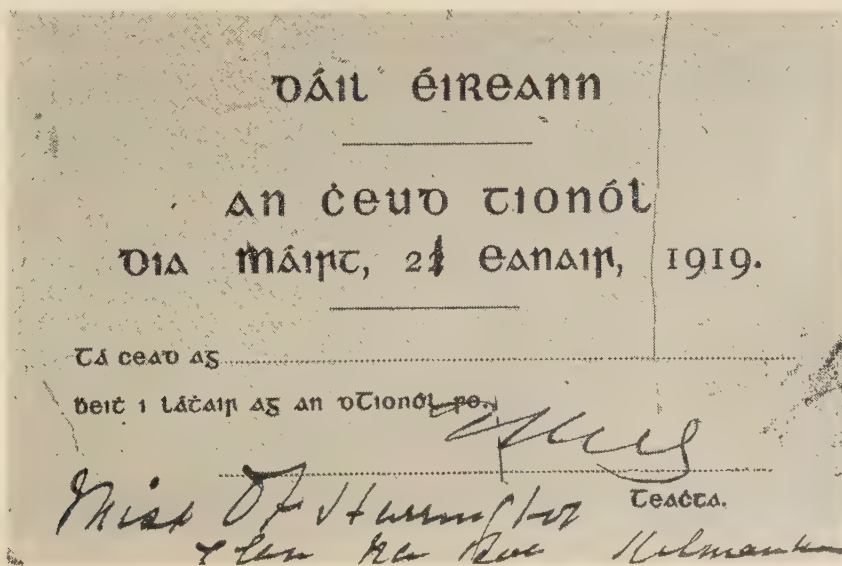 Dáil Éireann
An Ċeud Tionól
Dia Máirt, 21 Eanair, 1919.
Tá cead ag
beiṫ i láṫair ag an dTionól so.
Teaċta.
Miss Harrington